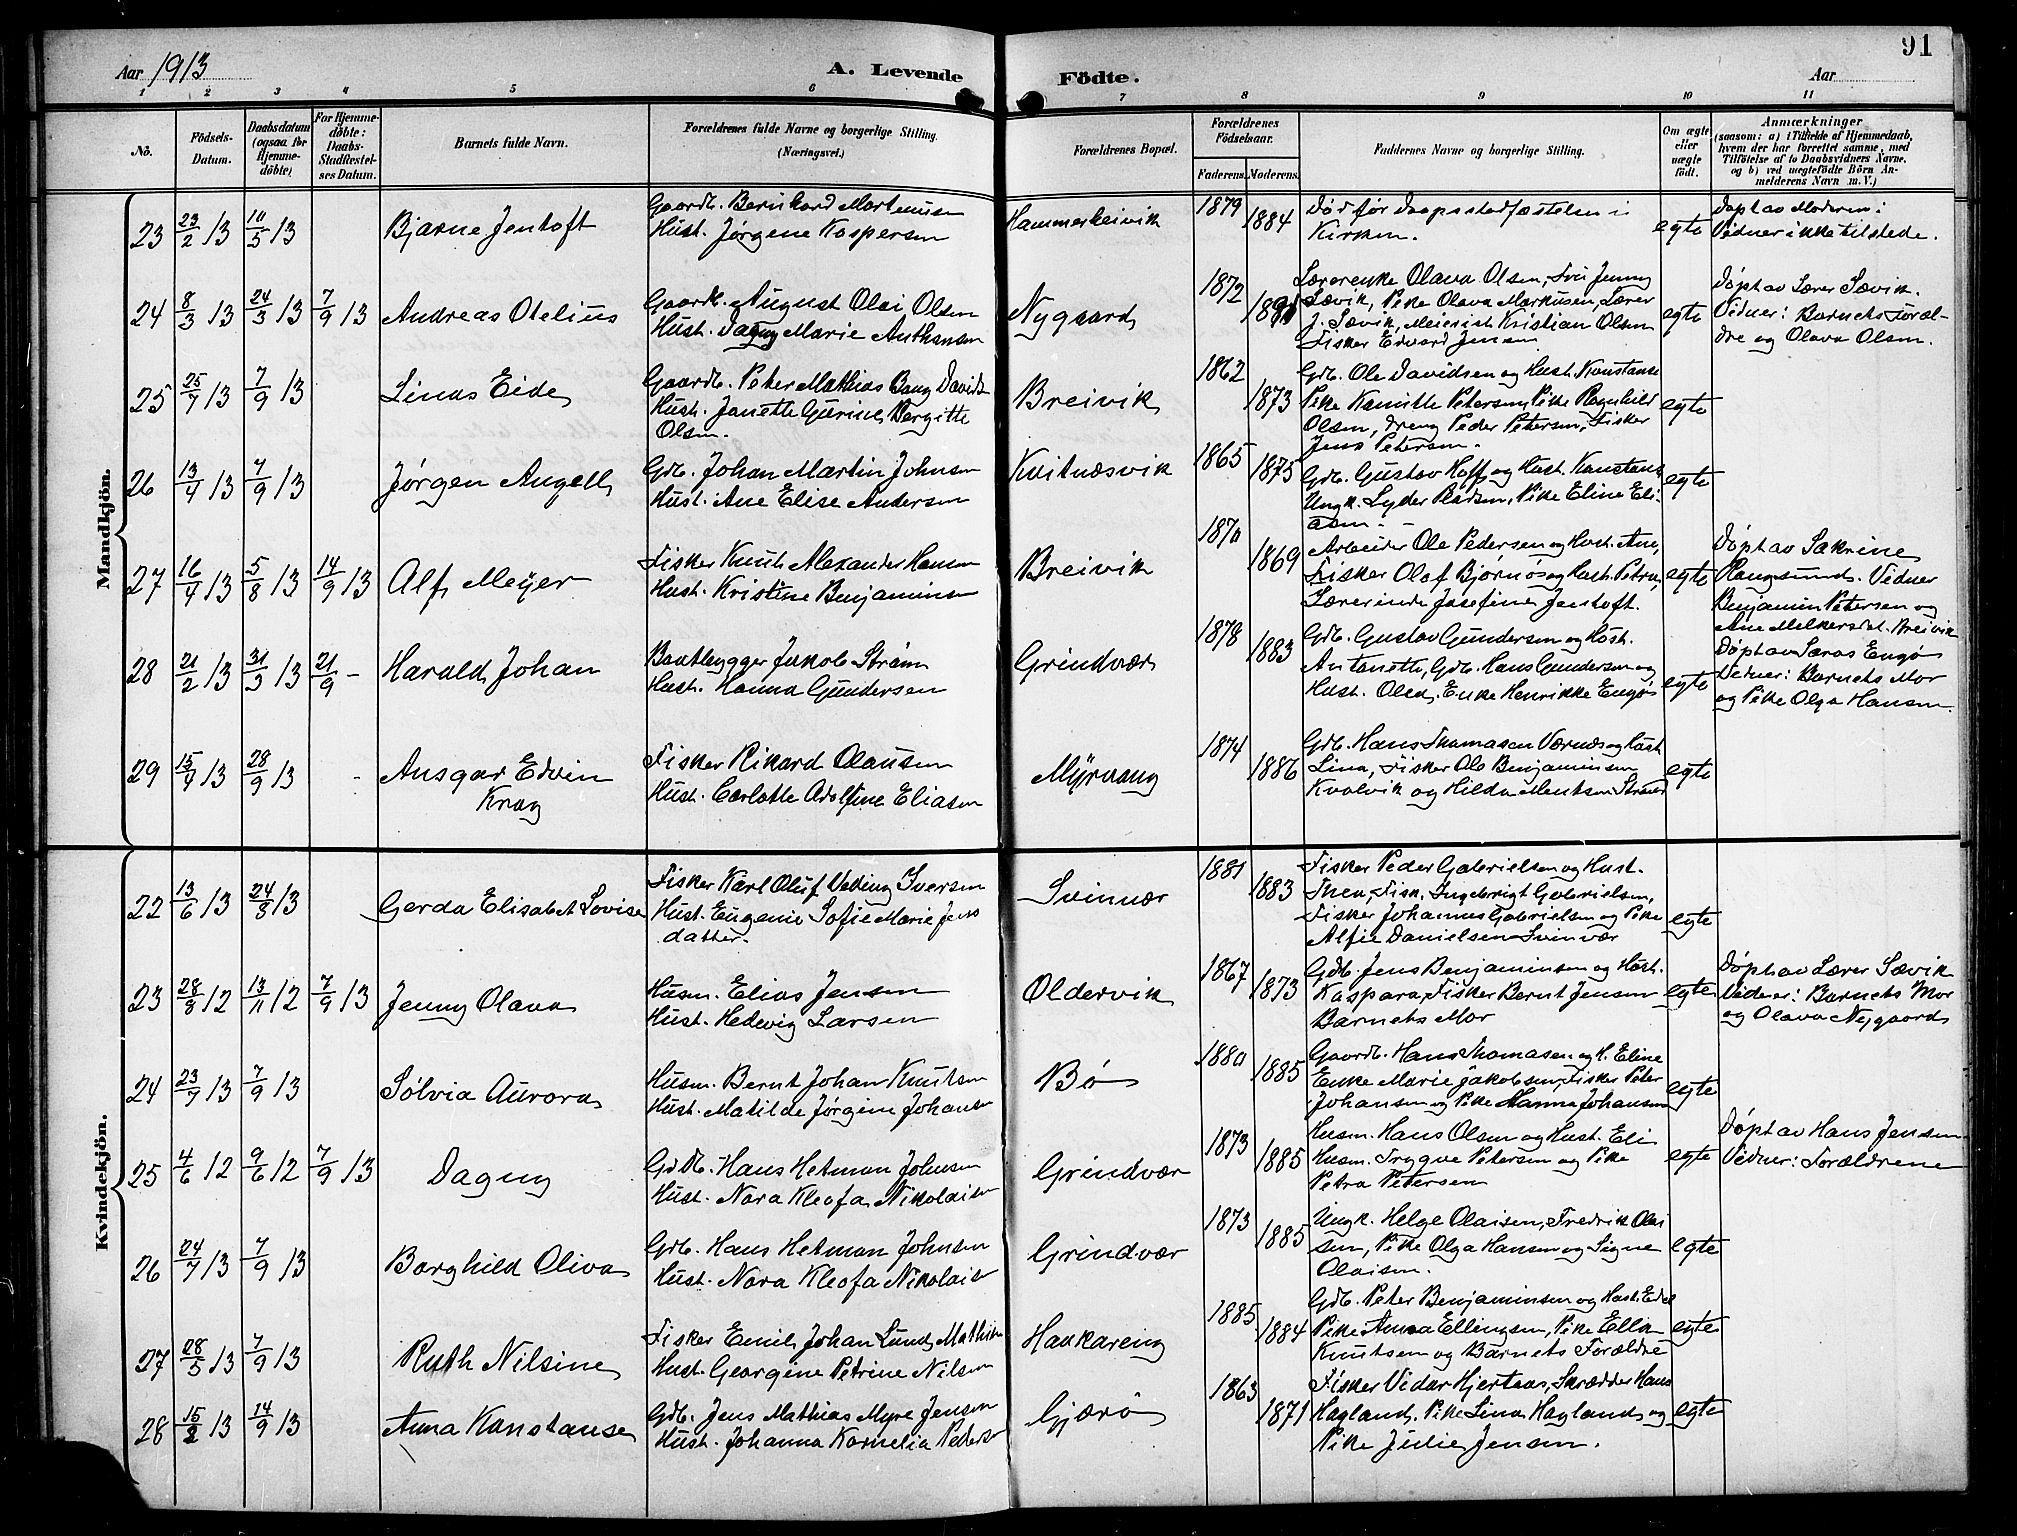 Aar 1913
A. Levende
Födte.
Aar
91
1 2 3 4 5 6 7 8 9 10 11
Nô.
Födsels-
Datum.
Daabsdatum
(ogsaa for
Hjemme-
döbte)
For Hjemme-
döbte:
Daabs-
Stadfæstel-
ses Datum.
Barnets fulde Navn.
Forældrenes fulde Navne og borgerlige Stilling.
(Næringsvei.)
Forældrenes Bopæl.
Forældrenes
Födselsaar.
Faderens. Moderens.
Faddernes Navne og borgerlige Stilling.
Om ægte
eller
uægte
födt.
Anmærkninger
(saasom: a) i Tilfælde af Hjemmedaab,
hvem der har forrettet samme, med
Tilföielse af to Daabsvidners Navne,
og b) ved uægtefödte Börn An-
melderens Navn m. V.)
Mandkjön.
23 23/2 13 10/5 13
Bjarne Jentoft
Gaardb. Bernhard Mortensen
Hust. Jørgene Kaspersen
Hammerbeivik
1879
1884
Død før Daapsstadfæstelsen i
Kirken.
egte
Døpt av Moderen:
Vidner ikke tilstede.
24 8/3 13 24/3 13 7/9 13
Andreas Otelius
Gaardb. August Olai Olsen
Hust. Dagny Marie Anthonsen
Nygaard
1872
Lærerenke Olava Olsen, Fru Jenny
Sævik, Pike Olava Markusen, Lærer
J. Sævik, Meierist Kristian Olsen
Fisker Edvard Jensen
egte
Døpt av Lærer Sævik.
Vidner: Barnets Foræl-
dre og Olava Olsen.
25 25/7 13 7/9 13
Linas Eide
Gaardb. Peter Mathias Bang Davids
Hust. Janette Gurine Bergitte
Olsen.
Breivik
1862
1873
Gdb. Ole Davidsen og Hust. Konstanse
Pike Kamille Petersen, Pike Ragnhild
Olsen, Dreng Peder Petersen, Fisker
Jens Petersen.
egte
26 13/4 13 7/9 13
Jørgen Angell
Gdb. Johan Martin Johnsen
Hust. Ane Elise Andersen
Kvitnæsvik
1865
1875
Gdb. Gustav Hoff og Hust. Konstanse
Ungk. Lyder Pladsen, Pike Eline Eli-
asen.
egte
27 16/4 13 5/8 13 14/9 13
Alf Meyer
Fisker Knut Alexander Hansen
Hust. Kristine Benjaminsen
Breivik
1870
1869
Arbeider Ole Pedersen og Hust. Ane,
Fisker Olaf Bjørnøs og Hust. Petra,
Lærerinde Josefine Jentoft.
egte
Døpt av Sakrine
Hangsund. Vidner
Benjamin Petersen og
Ane Melkersdat. Breivik
28 21/2 13 31/3 13 21/9 -
Harald Johan
Baatbygger Jakob Strøm
Hust. Hanna Gundersen
Grindvær
1878
1883
Gdb. Gustav Gundersen og Hust.
Antonette, Gdb. Hans Gundersen og
Hust. Olea, Enke Henrikke Engø
egte
Døpt av Saras Engø
Vidner: Barnets Mor
og Pike Olga Hansen.
29 15/7 13 28/9 13
Ansgar Edvin
Krag
Fisker Rikard Olausen
Hust. Carlotte Adolfine Eliasen
Myrvang
1874
1886
Gdb. Hans Thomasen Værnes og Hust
Lina, Fisker Ole Benjaminsen
Kvalvik og Hilda Mentsen
egte
Kvindekjön.
22 13/6 13 24/8 13
Gerda Elisabet Lovise
Fisker Karl Oluf Veding Iversen
Hust. Eugenie Sofie Marie Jens
datter.
Svinvær
1881
1883
Fisker Peder Gabrielsen og Hust.
Thea, Fisk. Ingebrigt Gabrielsen,
Fisker Johannes Gabrielsen og Pike
Alfie Danielsen Svinvær
egte
23 28/8 12 13/11 12 7/9 13
Jenny Olava
Husm. Elias Jensen
Hust. Hedevig Larsen
Oldervik
1867
1873
Gdb. Jens Benjaminsen og Hust.
Kaspara, Fisker Bernt Jensen
Barnets Mor
egte
Døpt av Lærer Sævik
Vidner: Barnets Mor
og Olava Nygaard
24 23/7 13 7/9 13
Sølvia Aurora
Husm. Bernt Johan Knutsen
Hust. Matilde Jørgine Johansen
Bø
1880
1885
Gaardb. Hans Thomasen og H. Eline
Enke Marie Jakobsen, Fisker Peter
Johansen og Pike Hanna Johansen
egte
25 4/6 12 9/6 12 7/9 13
Dagny
Gdb. Hans Hetman Johnsen
Hust. Nora Kleofa Nikolaisen
Grindvær
1873
1885
Husm. Hans Olsen og Hust. Eli
Husm. Trygve Petersen og Pike
Petra Petersen
egte
Døpt av Hans Jensen
Vidner: Forældrene
26 24/7 13 7/9 13
Borghild Oliva
Gdb. Hans Hetman Johnsen
Hust. Nora Kleofa Nikolaisen
Grindvær
1873
1885
Ungk. Helge Olaisen, Fredrik Olai
sen, Pike Olga Hansen og Signe
Olaisen.
egte
27 28/5 13 7/9 13
Ruth Nilsine
Fisker Emil Johan Lund Mathisen
Hust. Georgine Petrine Nilsen
Haakareing
1885
1884
Gdb. Peter Benjaminsen og Hust. Edel
Pike Anna Ellingsen, Pike Ella
Knutsen og Barnets Forældre
egte
28 15/2 13 14/9 13
Anna Konstanse
Gdb. Jens Mathias Myre Jensen
Hust. Johanna Kornelia Peders
Gjærø
1863
1871
Fisker Vidar Hjertaas, Skrædder Hans
Hagland, Pike Lina Hagland og
Pike Julie Jensen.
egte